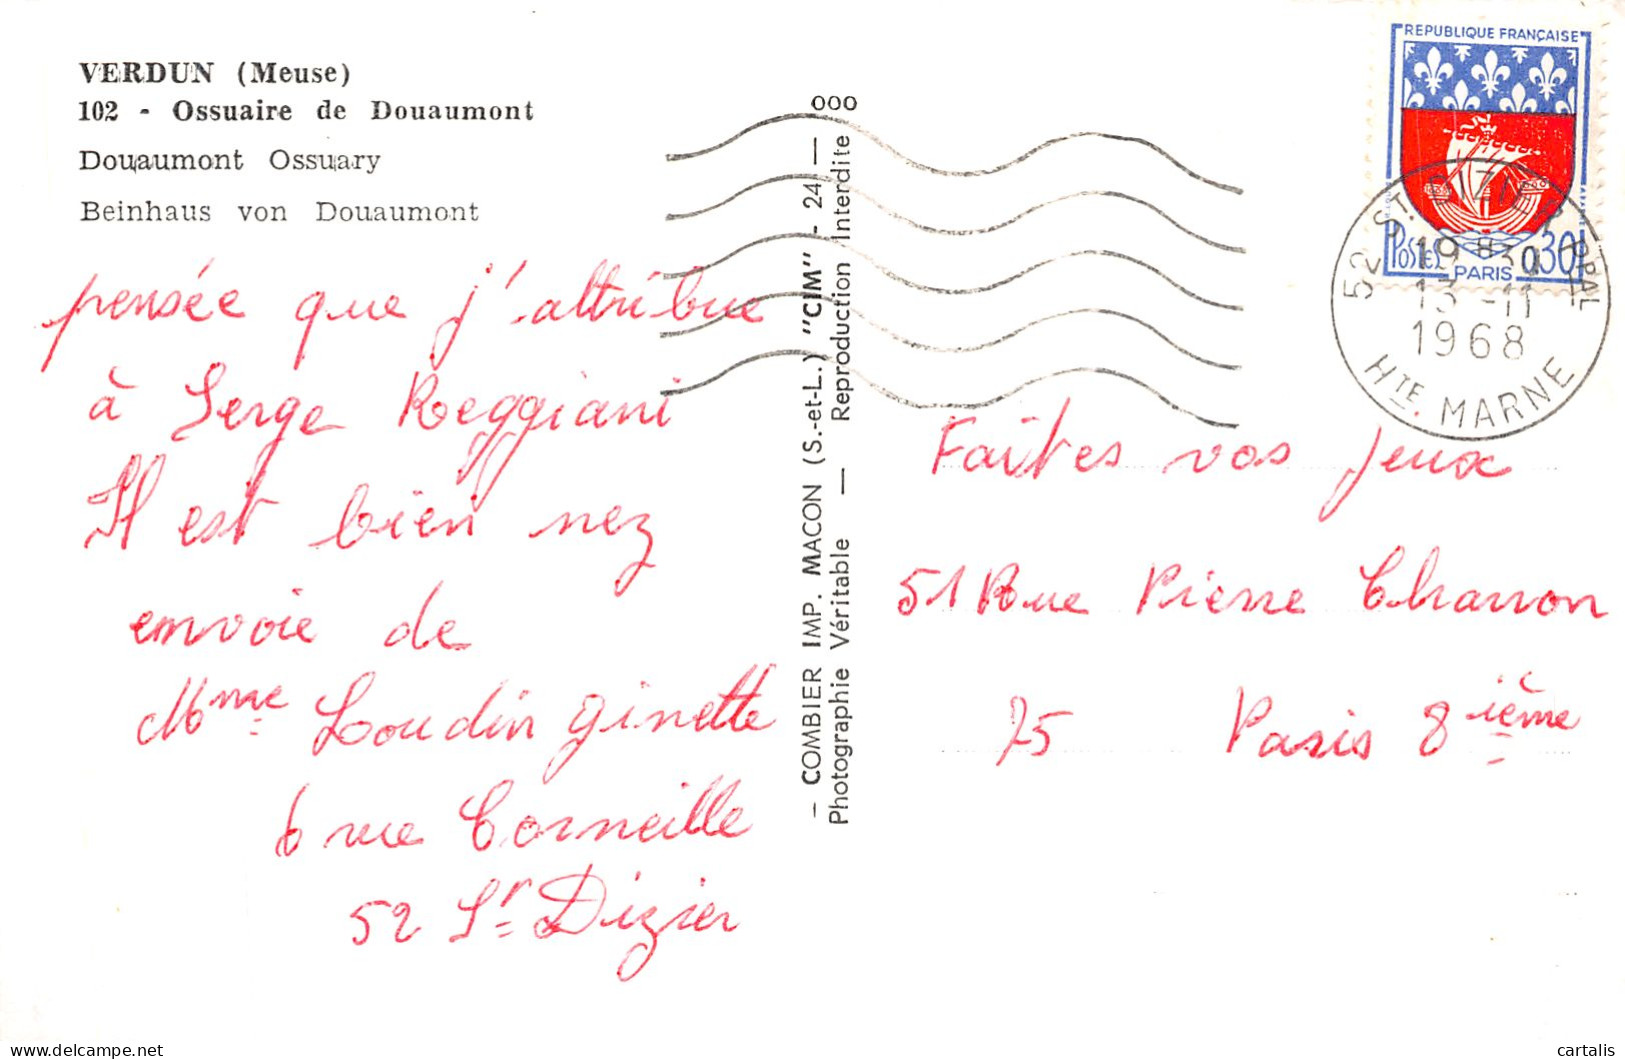 VERDUN (Meuse)
102 - Ossuaire de Douaumont
Douaumont Ossuary
Beinhaus von Douaumont
pensée que j'attribue
à Serge Reggiani
Il est bien nez
envoie de
Mme Loudin ginette
6 rue Corneille
52 St Dizier
— COMBIER IMP. MACON (S.-et-L.) "CIM" - 24 —
Photographie Véritable — Reproduction Interdite
000
REPUBLIQUE FRANÇAISE
POSTES 0,30
PARIS
52 ST DIZIER PPAL
19 H 30
13 -11
1968
HTE MARNE
Faites vos jeux
51 Rue Pierre Charron
75 Paris 8ième
delcampe.net
cartalis